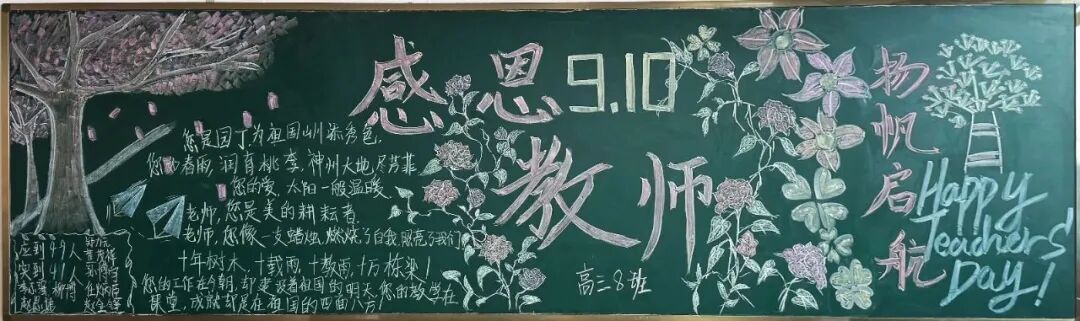 感恩
9.10
教师
扬帆启航
Happy
Teachers'
Day!
您是园丁为祖国山川添秀色,
您如春雨,润育桃李,神州大地尽芳菲
您的爱,太阳一般温暖
老师,您是美的耕耘者
老师,您像一支蜡烛,燃烧了自我,照亮了我们
十年树木,十载雨,十万栋梁!
您的工作在今朝,却建设着祖国的明天,您的教学在
课堂,成就却是在祖国的四面八方
应到49人
实到41人
高三8班